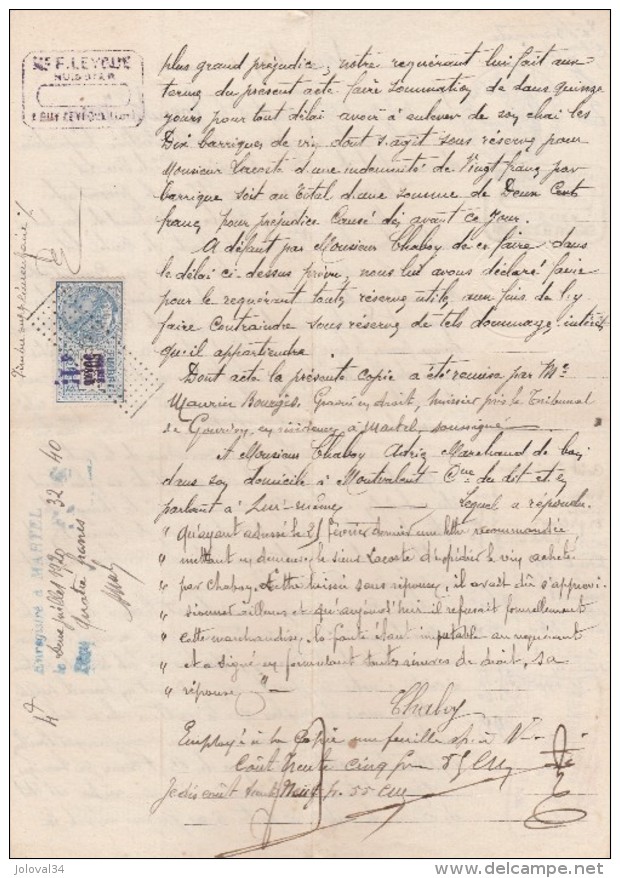 Me F. LEVQUE
HUISSIER
plus grand préjudice, notre requérant lui fait aux
termes du présent acte faire sommation de dans quinze
jours pour tout délai avoir à enlever de son chai les
Dix barriques de vin dont s'agit sous réserve pour
Monsieur Lacoste d'une indemnité de Vingt francs par
barrique soit au total d'une somme de Deux Cents
francs pour préjudice causé dès avant ce jour.
A défaut par Monsieur Chaboy de ce faire dans
le délai ci-dessus prévu, nous lui avons déclaré faire
pour le requérant toutes réserves utiles aux fins de l'y
faire contraindre sous réserve de tels dommages intérêts
qu'il appartiendra
Dont acte la présente copie a été remise par Me
Maurice Bourgès, Gradué en droit, huissier près le Tribunal
de Gourdon, en résidence à Martel, soussigné
A Monsieur Chaboy Adrien Marchand de bois
dans son domicile à Montvalent Cne du dit et y
parlant à Lui-même Lequel a répondu
" qu'ayant adressé le 25 février dernier une lettre recommandée
" mettant en demeure le sieur Lacoste d'expédier le vin acheté
" par Chaboy, cette lettre laissée sans réponse, il avait dû s'approvi-
" sionner ailleurs et qu'aujourd'hui il refusait formellement
" cette marchandise, la faute étant imputable au requérant
" et a signé en formulant toutes réserves de droit, sa
" réponse "
Chaboy
Employé à la Copie une feuille
Coût trente cinq frs
Je dis coût trente Neuf fr. 55 c
Timbre supplémentaire
Enregistré à MARTEL
le seize juillet 1920 32 40
Reçu quatre francs
4d
joloval34
www.delcampe.net